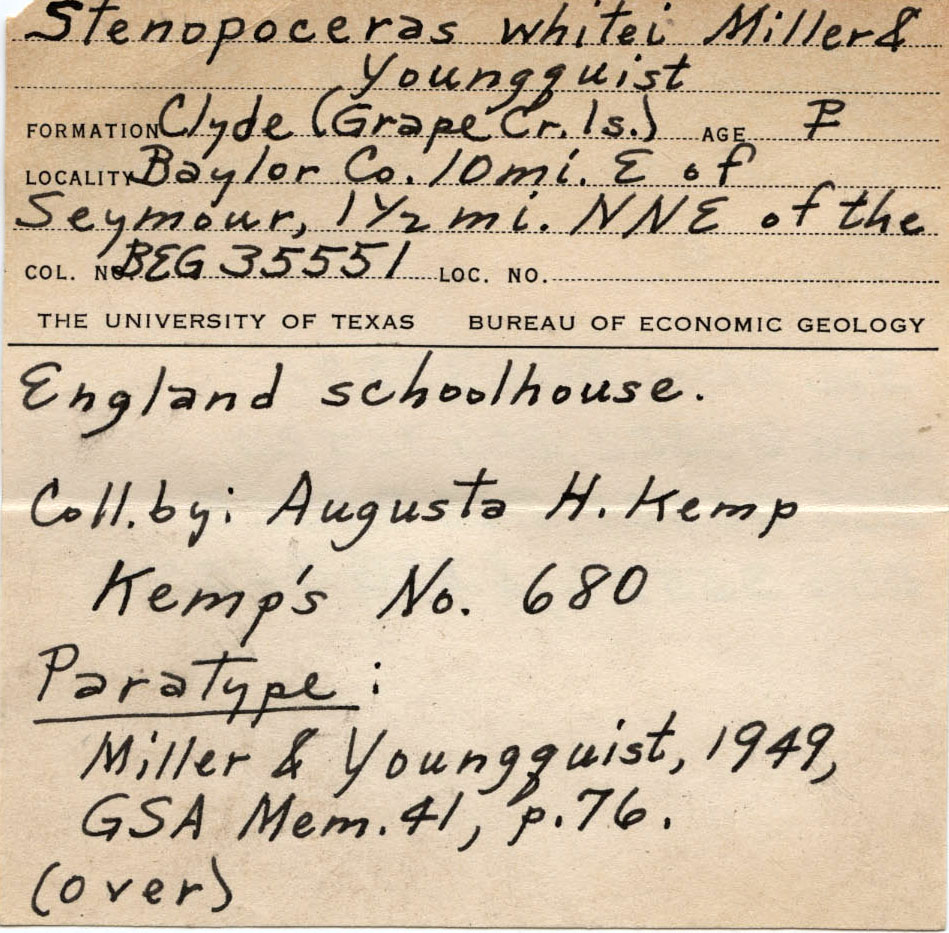 Stenopoceras whitei Miller &
Youngquist
FORMATION Clyde (Grape Cr. ls.) AGE P
LOCALITY Baylor Co. 10 mi. E of
Seymour, 1 1/2 mi. NNE of the
COL. NO. BEG 35551 LOC. NO.
THE UNIVERSITY OF TEXAS BUREAU OF ECONOMIC GEOLOGY
England schoolhouse.
Coll. by: Augusta H. Kemp
Kemp's No. 680
Paratype:
Miller & Youngquist, 1949,
GSA Mem. 41, p. 76.
(over)